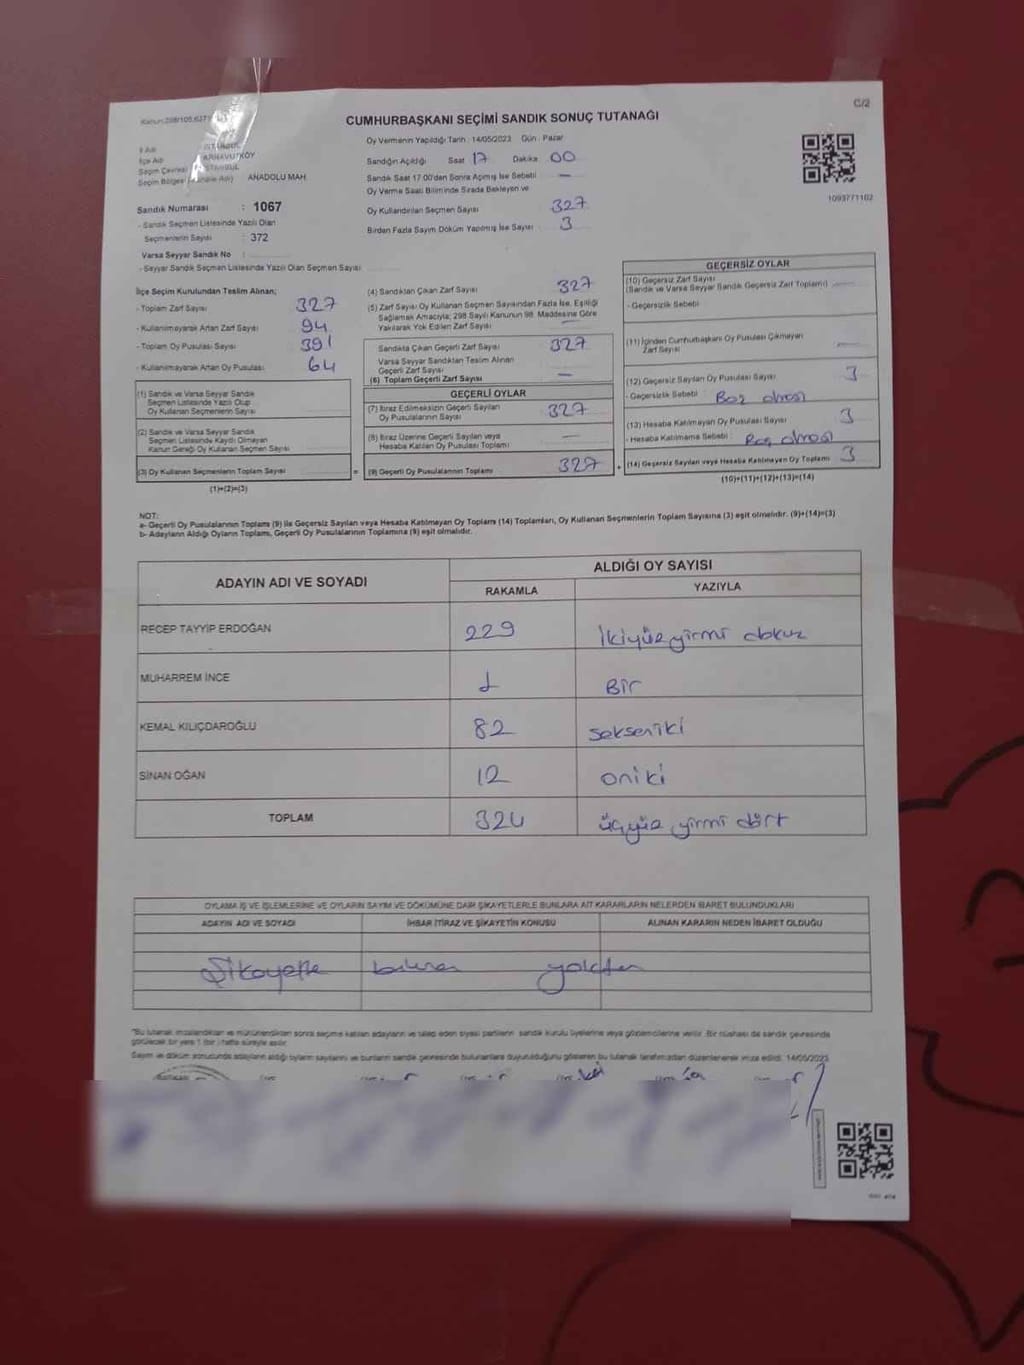 C/2
CUMHURBAŞKANI SEÇİMİ SANDIK SONUÇ TUTANAĞI
Oy Vermenin Yapıldığı Tarih : 14/05/2023 Gün : Pazar
İl Adı İSTANBUL
İlçe Adı ARNAVUTKÖY
Seçim Çevresi İSTANBUL
Seçim Bölgesi ANADOLU MAH
Sandık Numarası : 1067
- Sandık Seçmen Listesinde Yazılı Olan
Seçmenlerin Sayısı : 372
Varsa Seyyar Sandık No :
- Seyyar Sandık Seçmen Listesinde Yazılı Olan Seçmen Sayısı
Sandığın Açıldığı Saat 17 Dakika 00
Sandık Saat 17.00'den Sonra Açılmış İse Sebebi —
Oy Verme Saati Bitiminde Sırada Bekleyen ve
Oy Kullandırılan Seçmen Sayısı 327
Birden Fazla Sayım Döküm Yapılmış İse Sayısı 3
1093771102
İlçe Seçim Kurulundan Teslim Alınan;
- Toplam Zarf Sayısı 327
- Kullanılmayarak Artan Zarf Sayısı 94
- Toplam Oy Pusulası Sayısı 391
- Kullanılmayarak Artan Oy Pusulası 64
(1) Sandık ve Varsa Seyyar Sandık
Seçmen Listesinde Yazılı Olup
Oy Kullanan Seçmenlerin Sayısı
(2) Sandık ve Varsa Seyyar Sandık
Seçmen Listesinde Kaydı Olmayan
Kanun Gereği Oy Kullanan Seçmen Sayısı
(3) Oy Kullanan Seçmenlerin Toplam Sayısı =
(1)+(2)=(3)
(4) Sandıktan Çıkan Zarf Sayısı 327
(5) Zarf Sayısı Oy Kullanan Seçmen Sayısından Fazla İse, Eşitliği
Sağlamak Amacıyla; 298 Sayılı Kanunun 98. Maddesine Göre
Yakılarak Yok Edilen Zarf Sayısı —
Sandıkta Çıkan Geçerli Zarf Sayısı 327
Varsa Seyyar Sandıktan Teslim Alınan
Geçerli Zarf Sayısı
(6) Toplam Geçerli Zarf Sayısı —
GEÇERLİ OYLAR
(7) İtiraz Edilmeksizin Geçerli Sayılan
Oy Pusulasının Sayısı 327
(8) İtiraz Üzerine Geçerli Sayılan veya
Hesaba Katılan Oy Pusulası Toplamı —
(9) Geçerli Oy Pusulalarının Toplamı 327 +
GEÇERSİZ OYLAR
(10) Geçersiz Zarf Sayısı
(Sandık ve Varsa Seyyar Sandık Geçersiz Zarf Toplamı) —
- Geçersizlik Sebebi
(11) İçinden Cumhurbaşkanı Oy Pusulası Çıkmayan
Zarf Sayısı —
(12) Geçersiz Sayılan Oy Pusulası Sayısı 3
- Geçersizlik Sebebi Boş olması
(13) Hesaba Katılmayan Oy Pusulası Sayısı 3
- Hesaba Katılmama Sebebi : Boş olması
(14) Geçersiz Sayılan veya Hesaba Katılmayan Oy Toplamı 3
(10)+(11)+(12)+(13)=(14)
NOT:
a- Geçerli Oy Pusulalarının Toplamı (9) ile Geçersiz Sayılan veya Hesaba Katılmayan Oy Toplamı (14) Toplamları, Oy Kullanan Seçmenlerin Toplam Sayısına (3) eşit olmalıdır. (9)+(14)=(3)
b- Adayların Aldığı Oyların Toplamı, Geçerli Oy Pusulalarının Toplamına (9) eşit olmalıdır.
ADAYIN ADI VE SOYADI
ALDIĞI OY SAYISI
RAKAMLA YAZIYLA
RECEP TAYYİP ERDOĞAN 229 İkiyüz yirmi dokuz
MUHARREM İNCE 1 Bir
KEMAL KILIÇDAROĞLU 82 seksen iki
SİNAN OĞAN 12 oniki
TOPLAM 324 üçyüz yirmi dört
OYLAMA İŞ VE İŞLEMLERİNE VE OYLARIN SAYIM VE DÖKÜMÜNE DAİR ŞİKAYETLERLE BUNLARA AİT KARARLARIN NELERDEN İBARET BULUNDUKLARI
ADAYIN ADI VE SOYADI İHBAR İTİRAZ VE ŞİKAYETİN KONUSU ALINAN KARARIN NEDEN İBARET OLDUĞU
Şikayette bulunan yoktur
"Bu tutanak imzalandıktan ve mühürlendikten sonra seçime katılan adayların ve talep eden siyasi partilerin sandık kurulu üyelerine veya gözlemcilerine verilir. Bir nüshası da sandık çevresinde
görülecek bir yere 1 (bir) hafta süreyle asılır.
Sayım ve döküm sonucunda adayların aldığı oyların sayılarını ve bunların sandık çevresinde bulunanlara duyurulduğunu gösteren bu tutanak tarafımızdan düzenlenerek imza edildi. 14/05/2023